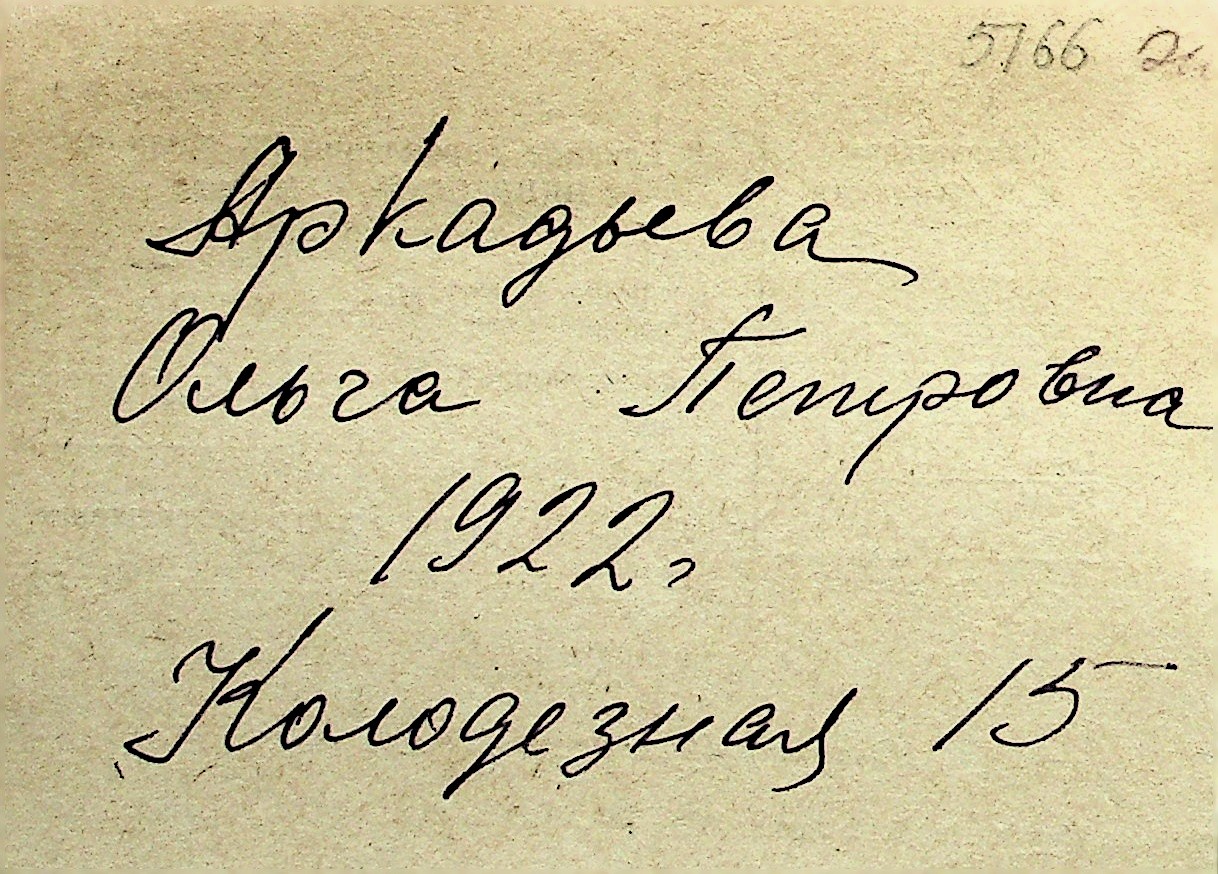 5766
Аркадьева
Ольга Петровна
1922г
Колодезная 15